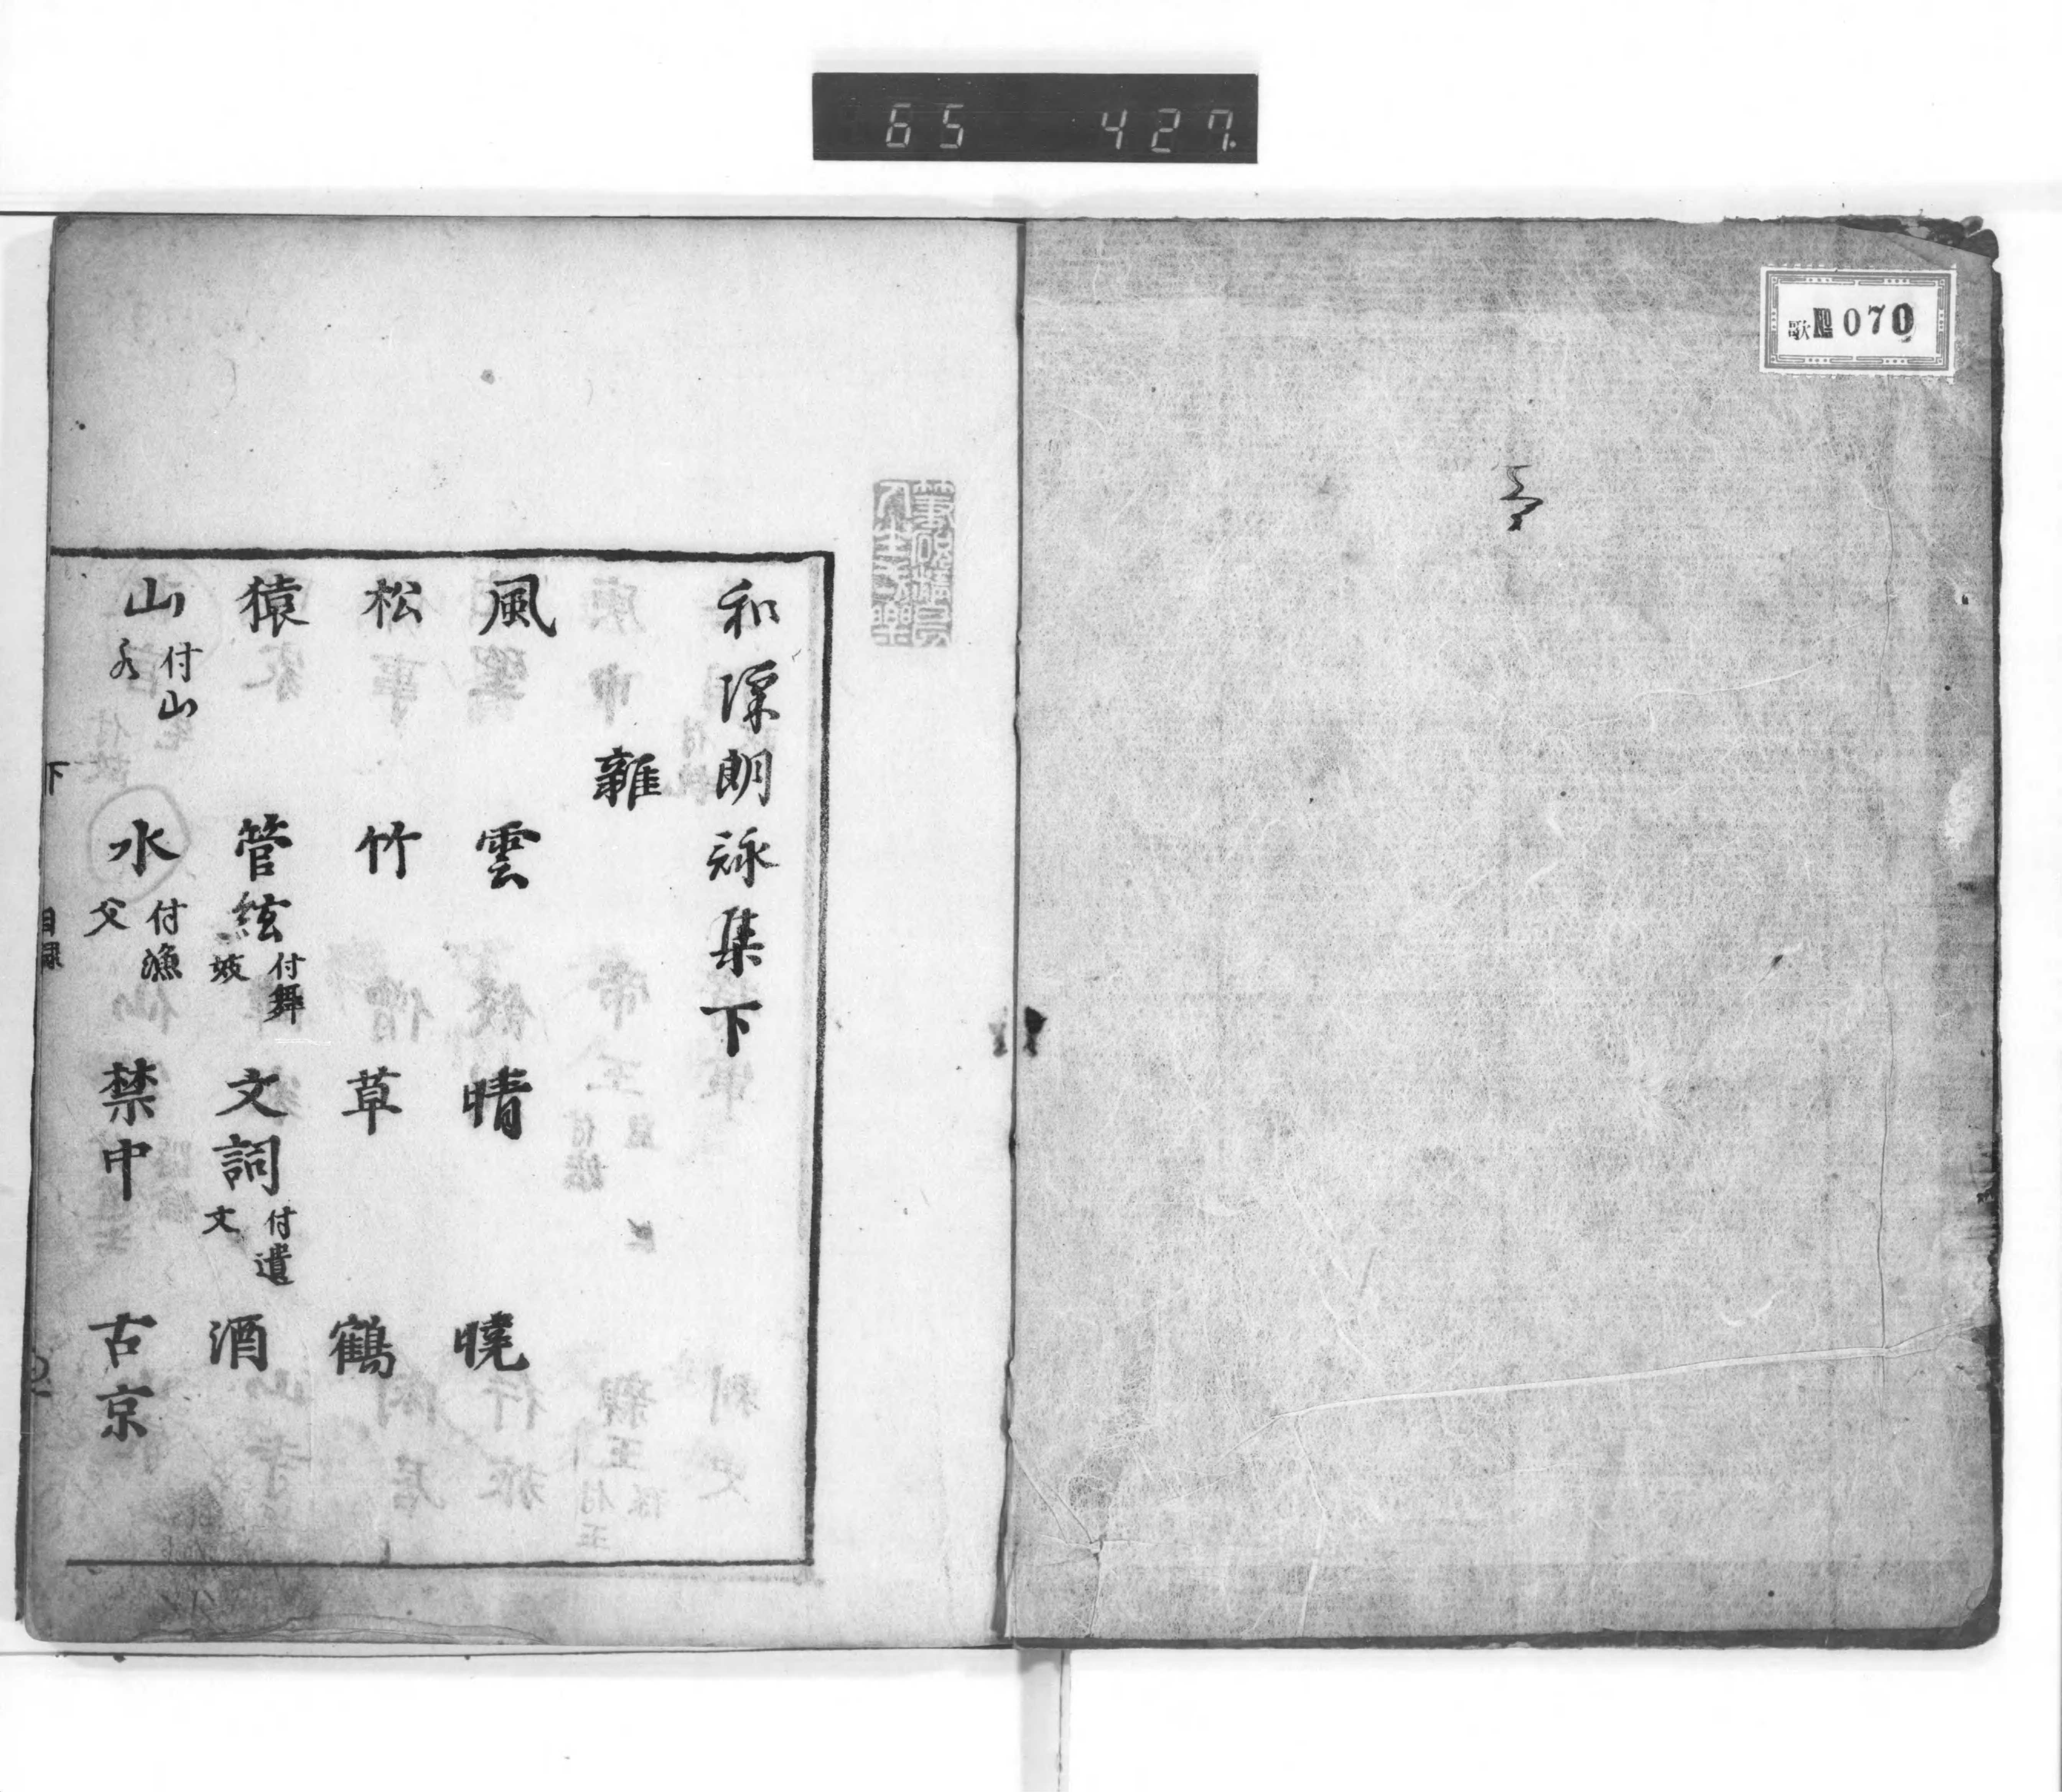 65 427.
歌 № 070
和漢朗詠集下
雜
風 雲 晴 曉
松 竹 草 鶴
猿 管絃付舞妓 文詞付遺文 酒
山付山水 水付漁父 禁中 古京
下 目録